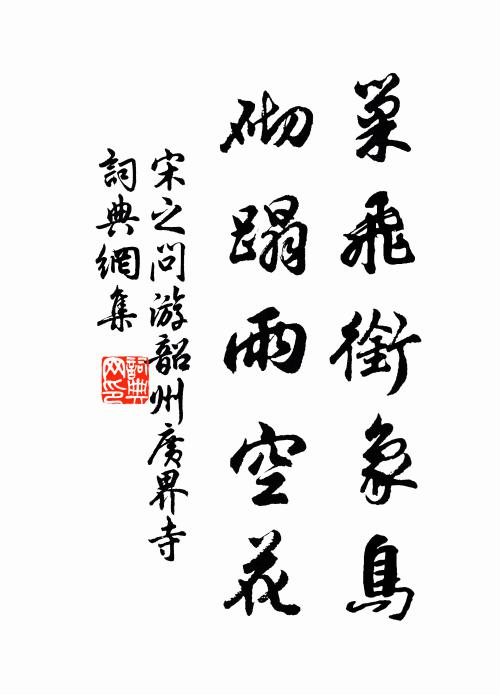 巢飛銜象鳥
砌蹋雨空花
宋之問游韶州廣界寺
詞典網集
詞典網印